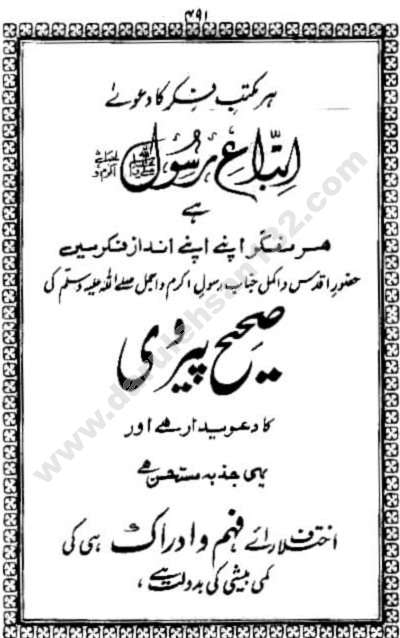 ۴۹۱
ہر مکتبِ فکر کا دعوےٰ
اتباعِ رسول صلی اللہ علیہ وسلم
ہے
ہر مفکّر اپنے اپنے اندازِ فکر میں
حضورِ اقدس و اکمل جناب رسولِ اکرم و اجمل صلے اللہ علیہ وسلّم کی
صحیح پیروی
کا دعویدار ہے اور
یہی جذبہ مستحسن ہے
اختلافِ رائے فہم و ادراک ہی کی
کمی بیشی کی بدولت ہے،